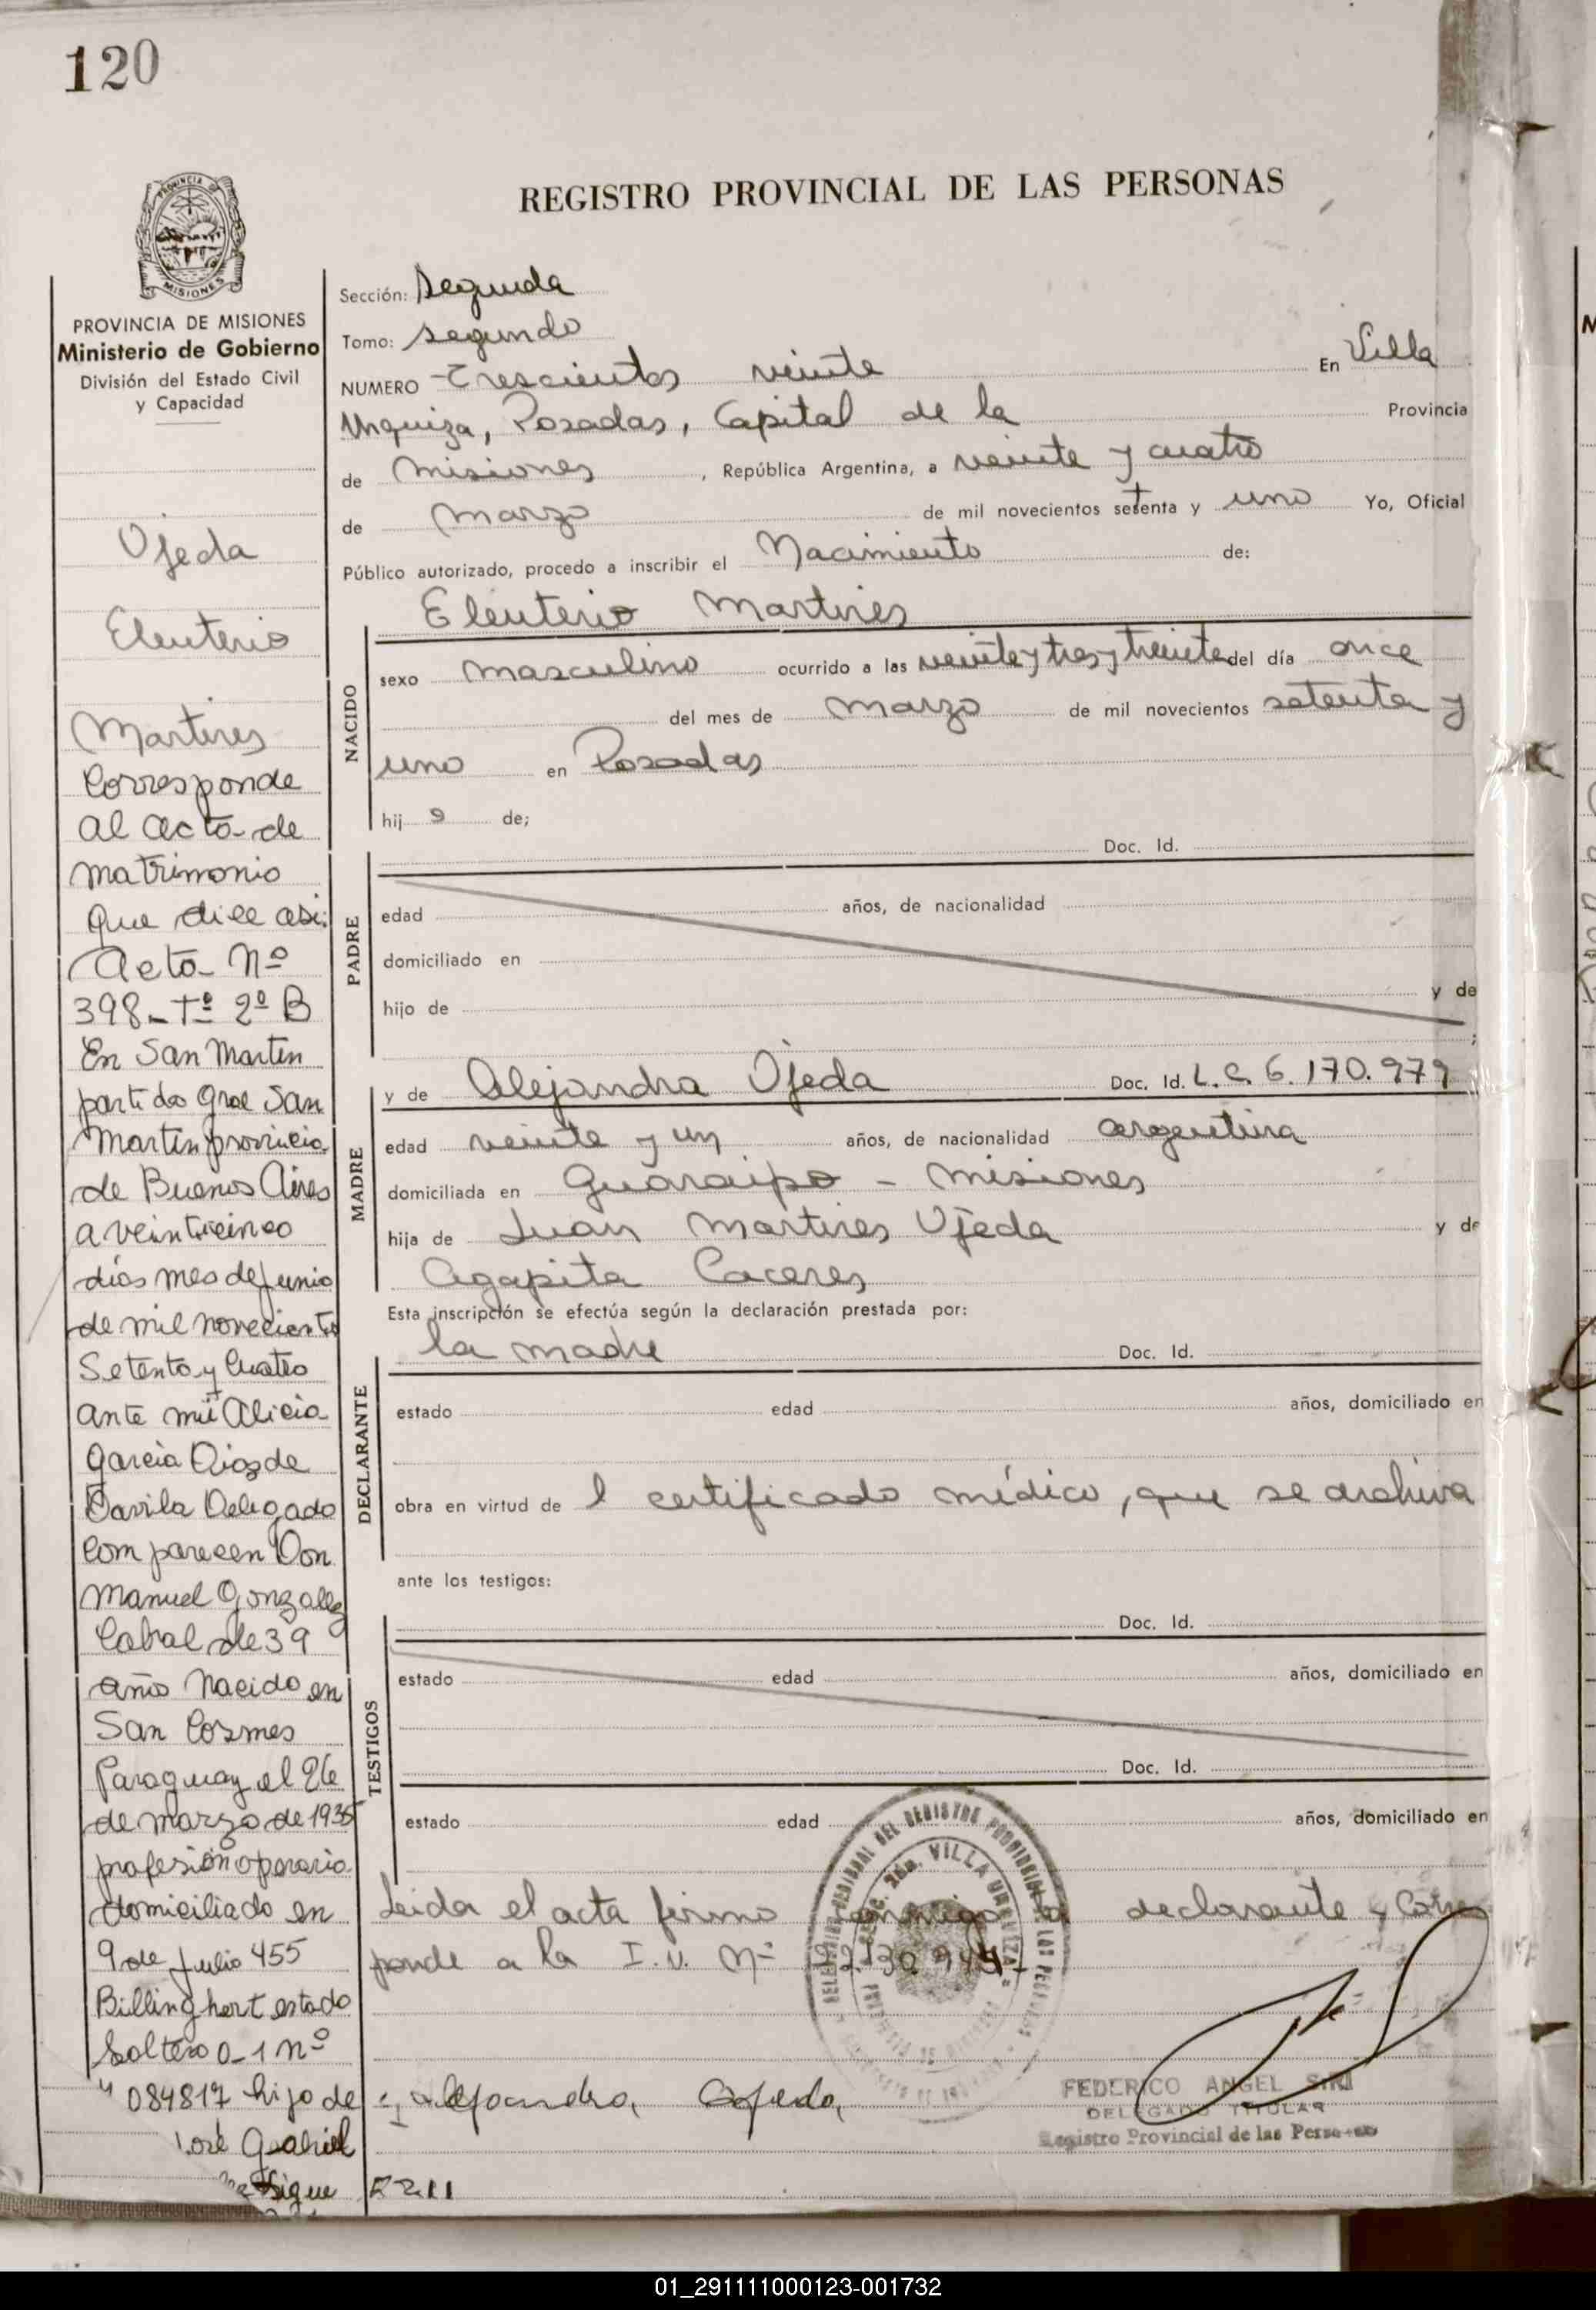 120
PROVINCIA DE
MISIONES
PROVINCIA DE MISIONES
Ministerio de Gobierno
División del Estado Civil
y Capacidad
Ojeda
Eleuterio
Martires
Corresponde
al acta de
matrimonio
que dice asi:
Acta Nº
398 Tº 2º B
En San Martin
partido Gral San
Martin provincia
de Buenos Aires
a veinticinco
días mes de junio
de mil novecientos
Setenta y Cuatro
ante mi Alicia
Garcia Dias de
Davila Delegado
Comparecen Don
Manuel Gonzalez
Cabral de 39
años Nacido en
San Cosmes
Paraguay el 26
de marzo de 1935
profesión operario
domiciliado en
9 de Julio 455
Billinghert estado
Soltero 0-1 nº
084817 hijo de
José Gabriel
Sigue
REGISTRO PROVINCIAL DE LAS PERSONAS
Sección: Segunda
Tomo: segundo
NUMERO Trescientos veinte En Villa
Urquiza, Posadas, Capital de la Provincia
de Misiones, República Argentina, a veinte y cuatro
de Marzo de mil novecientos setenta y uno Yo, Oficial
Público autorizado, procedo a inscribir el Nacimiento de:
Eleuterio Martires
NACIDO
sexo masculino ocurrido a las veinte y tres y treinta del día once
del mes de Marzo de mil novecientos setenta y
uno en Posadas
hij o de;
PADRE
Doc. Id.
edad años, de nacionalidad
domiciliado en
hijo de y de
;
MADRE
y de Alejandra Ojeda Doc. Id. L.C. 6.170.979
edad veinte y un años, de nacionalidad argentina
domiciliada en Guaraipo - Misiones
hija de Juan Martires Ojeda y de
Agapita Caceres
Esta inscripción se efectúa según la declaración prestada por:
DECLARANTE
la madre Doc. Id.
estado edad años, domiciliado en
obra en virtud de l certificado médico, que se archiva
ante los testigos:
TESTIGOS
Doc. Id.
estado edad años, domiciliado en
Doc. Id.
estado edad años, domiciliado en
Leida el acta firma conmigo la declarante y Corres
ponde a la I.U. Nº
VILLA URQUIZA
Alejandra Ojeda
FEDERICO ANGEL SIRI
DELEGADO TITULAR
Registro Provincial de las Personas
01_291111000123-001732